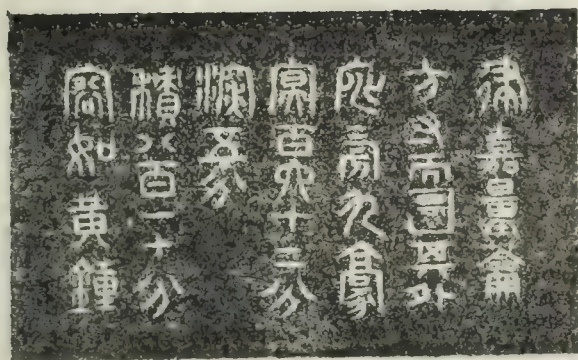 律嘉量龠
方寸而圜其外
庣旁九豪
冥百六十二分
深五分
積八百一十分
容如黃鍾